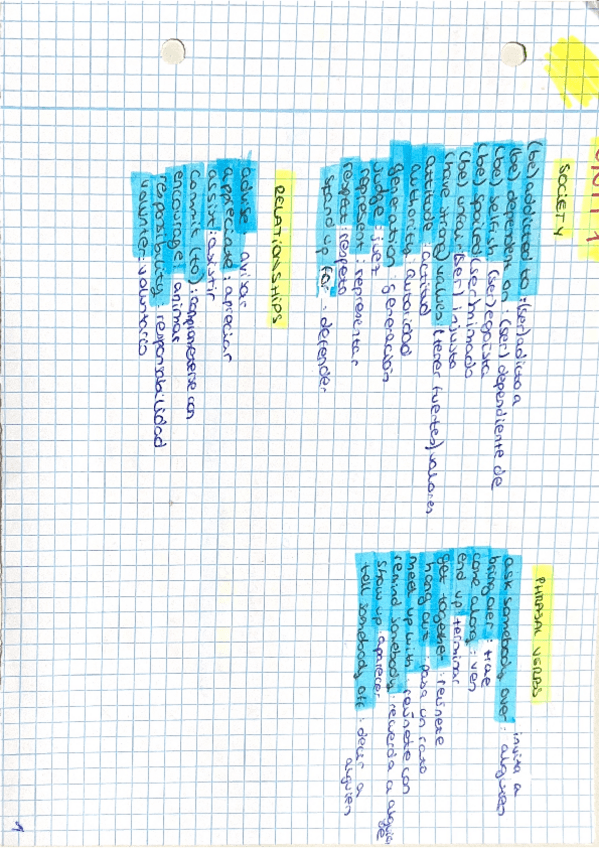 UNIT 1
SOCIETY
(be) addicted to : (ser) adicto a
(be) dependent on : (ser) dependiente de
(be) selfish : (ser) egoista
(be) spoiled : (ser) mimado
(be) unfair : (ser) injusto
(have strong) values : (tener fuertes) valores
attitude : actitud
authority : autoridad
generation : generación
judge : juez
represent : representar
respect : respeto
stand up for : defender
RELATIONSHIPS
advise : avisar
appreciate : apreciar
assist : asistir
commit (to) : comprometerse con
encourage : animar
responsibility : responsabilidad
volunteer : voluntario
PHRASAL VERBS
ask somebody over : invita a alguien
bring over : trae
come along : ven
end up : terminar
get together : reúnete
hang out : pasa un rato
meet up with : reúnete con
remind somebody : recuerda a alguien
show up : aparecer
tell somebody off : decir a alguien
1